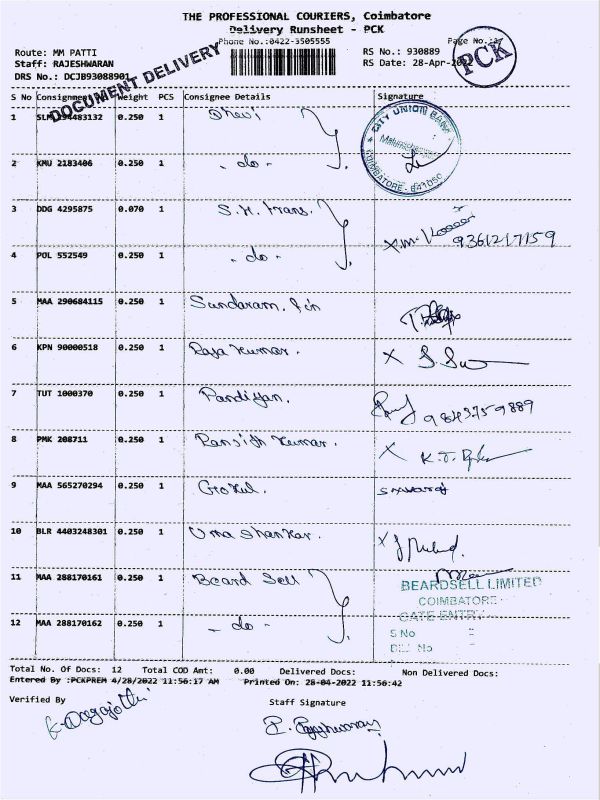 THE PROFESSIONAL COURIERS, Coimbatore
Delivery Runsheet - PCK
Phone No.:0422-3505555
Page No.:
Route: MM PATTI
RS No.: 930889
Staff: RAJESHWARAN
RS Date: 28-Apr-
DRS No.: DCJB93088901
DOCUMENT DELIVERY
PCK
S No Consignment Weight PCS Consignee Details Signature
1 0.250 1
CITY UNION BANK
COIMBATORE
2 KMU 2183406 0.250 1 - do -
3 DDG 4295875 0.070 1 S.N. trans.
9361217159
4 POL 552549 0.250 1 - do -
5 MAA 290684115 0.250 1 Sundaram. fin
6 KPN 90000518 0.250 1 Raja Kumar.
7 TUT 1000370 0.250 1 Pandiyan. 9843759889
8 PMK 208711 0.250 1 Ransith Kumar.
9 MAA 565270294 0.250 1 Gokul.
10 BLR 4403248301 0.250 1 Uma Shankar.
11 MAA 288170161 0.250 1 Beard Sell
BEARDSELL LIMITED
COIMBATORE
GATE ENTRY
12 MAA 288170162 0.250 1 - do -
S No
Total No. Of Docs: 12 Total COD Amt: 0.00 Delivered Docs: Non Delivered Docs:
Entered By :PCKPREM 4/28/2022 11:56:17 AM Printed On: 28-04-2022 11:56:42
Verified By
Staff Signature